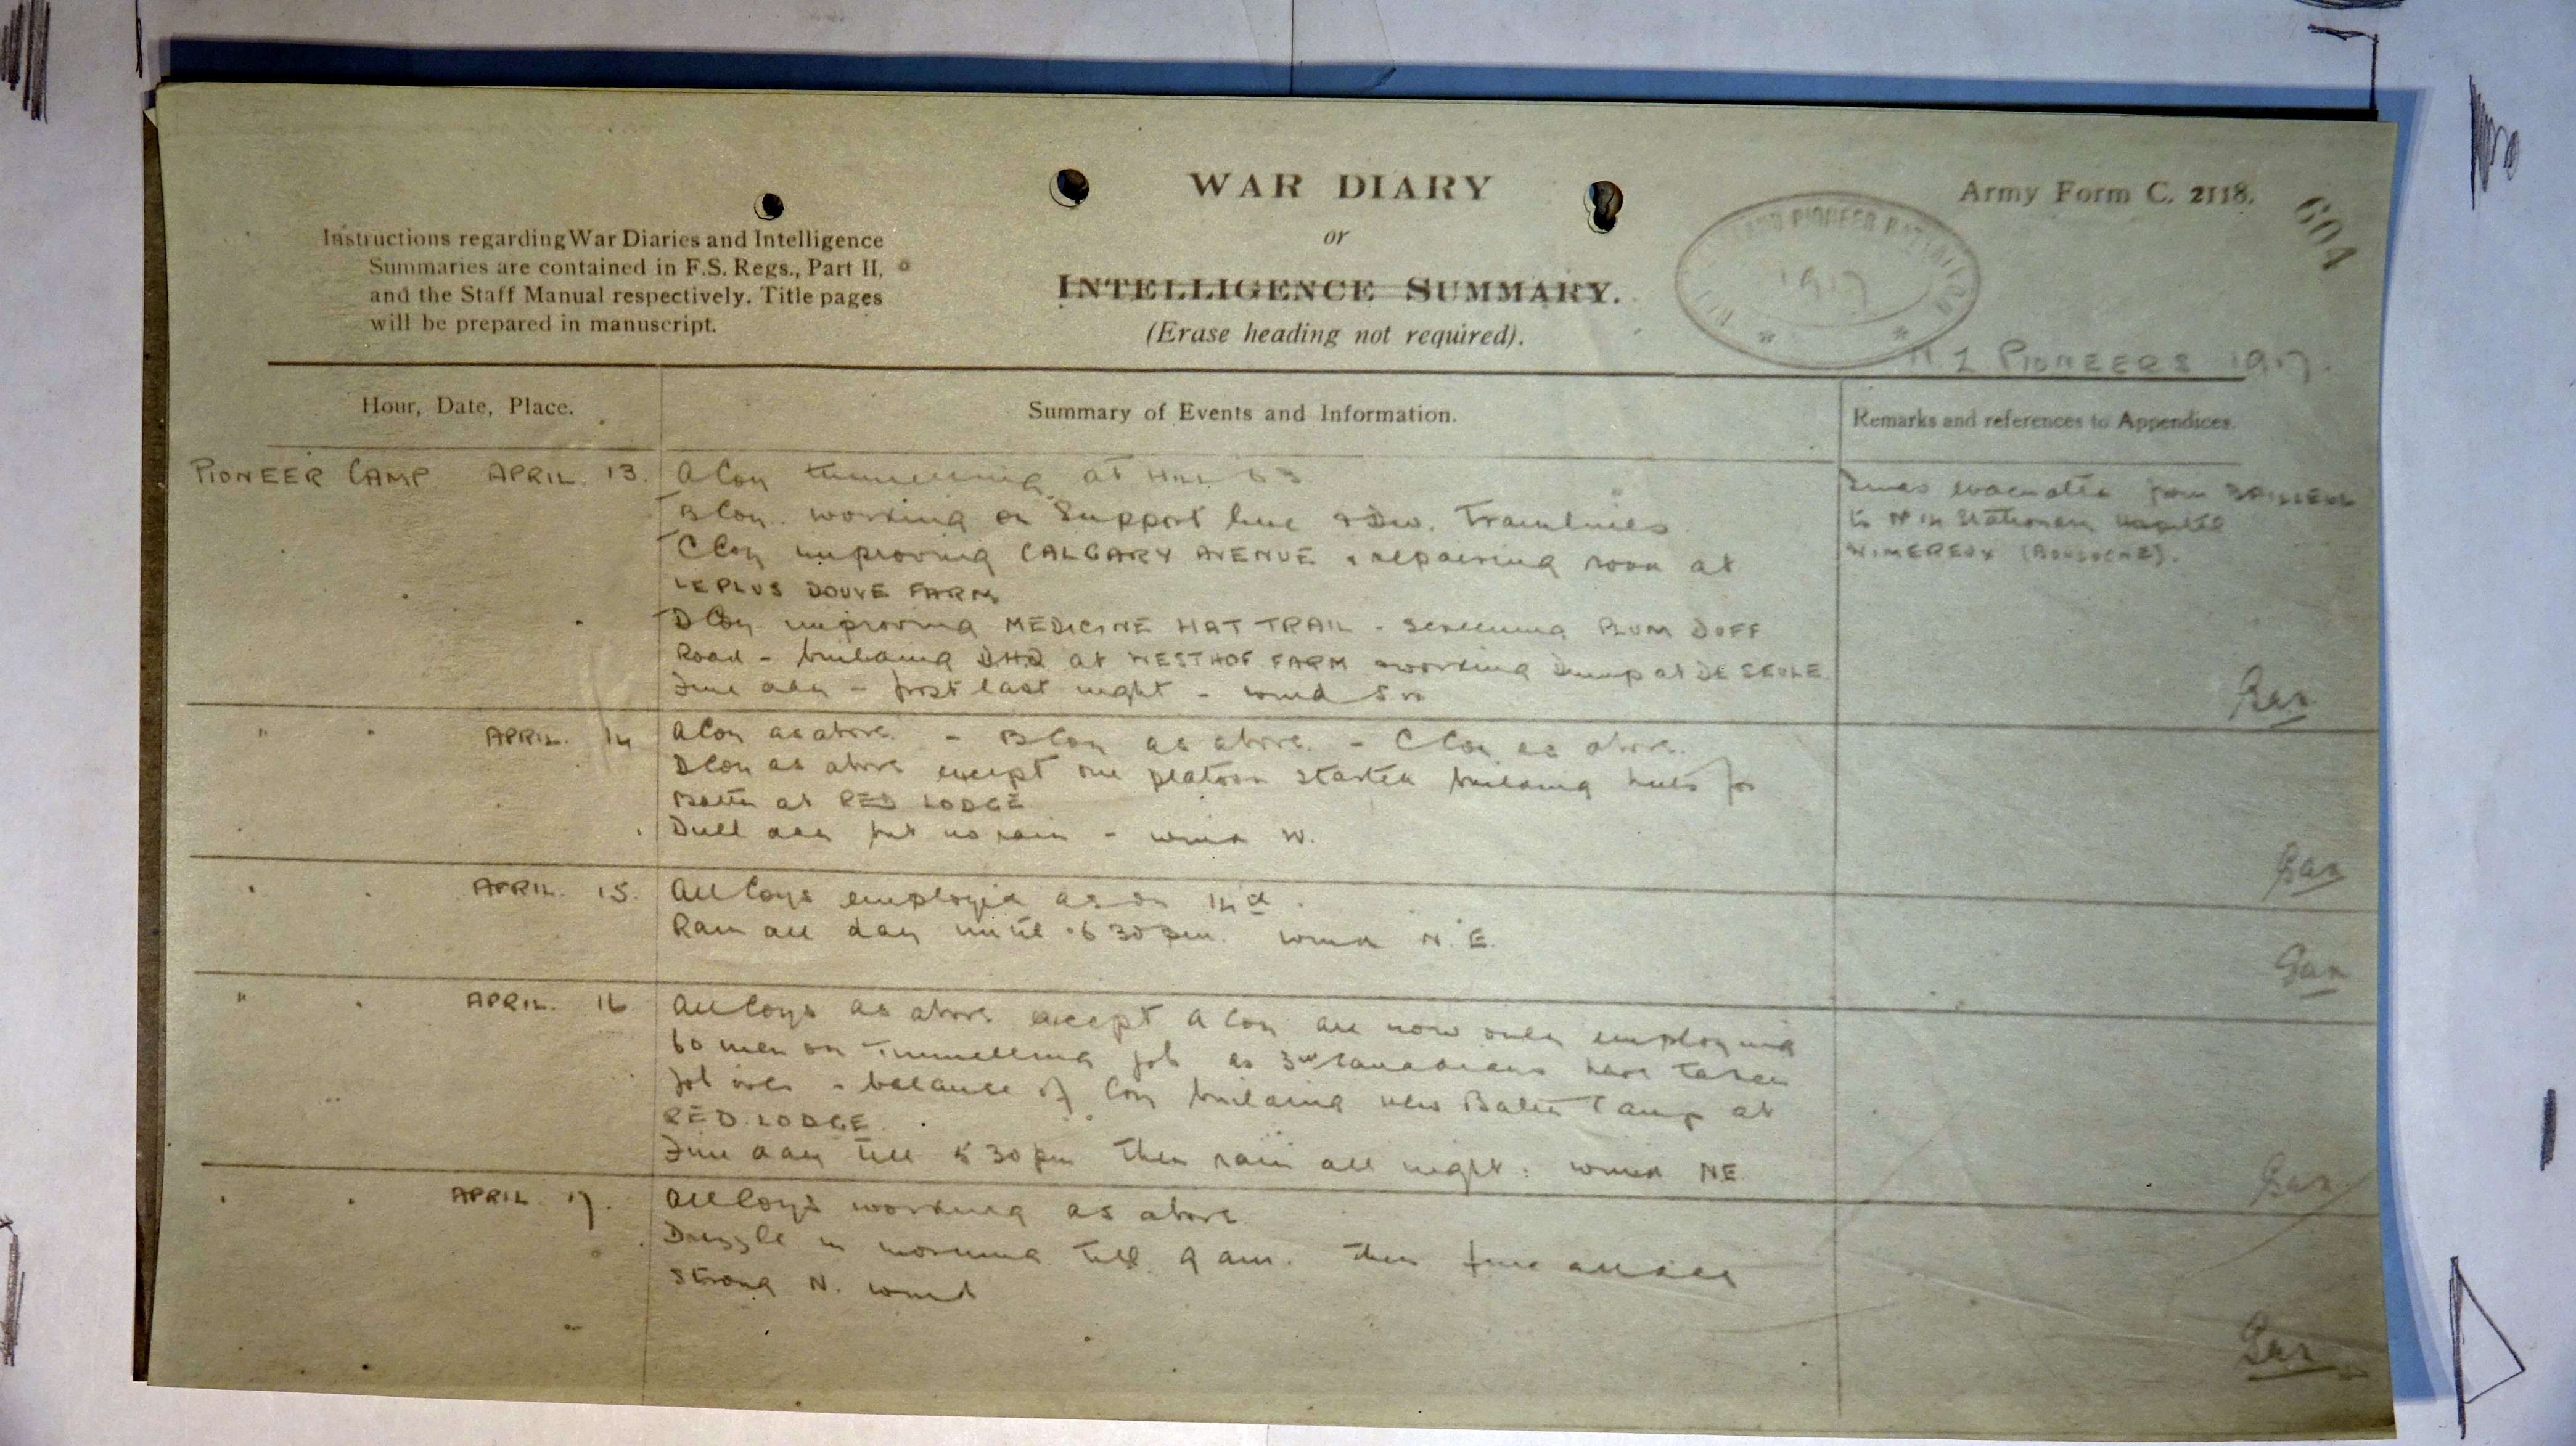 WAR DIARY
or
INTELLIGENCE SUMMARY.
(Erase heading not required).
Army Form C. 2118.
604
Instructions regarding War Diaries and Intelligence
Summaries are contained in F.S. Regs., Part II,
and the Staff Manual respectively. Title pages
will be prepared in manuscript.
PIONEER BATTALION
1917
N Z PIONEERS 1917.
Hour, Date, Place.
Summary of Events and Information.
Remarks and references to Appendices.
PIONEER CAMP APRIL. 13.
A Coy tunnelling at Hill 63
B Coy. working on Support line & Div. Tramlines
C Coy improving CALGARY AVENUE & repairing road at
LE PLUS DOUVE FARM
D Coy improving MEDICINE HAT TRAIL - screening PLUM DUFF
Road - building DHQ at WESTHOF FARM & working Dump at DE SEULE
Fine day - frost last night - wind SW
evacuated from BAILLEUL
to No 14 Stationary Hospital
WIMEREUX (BOULOGNE).
" " APRIL. 14
A Coy as above - B Coy as above. - C Coy as above.
D Coy as above except one platoon started building huts for
Battn at RED LODGE
Dull day but no rain - wind W.
" " APRIL. 15.
All Coys employed as on 14th.
Rain all day until 6 30 pm. wind N.E.
" " APRIL. 16
All Coys as above except A Coy are now only employing
60 men on Tunnelling job as 3rd Canadians have taken
job over - balance of Coy building new Battn Camp at
RED LODGE.
Fine day till 5 30 pm then rain all night. wind NE
" " APRIL 17.
All Coys working as above.
Drizzle in morning till 9 am. then fine all day
Strong N. wind